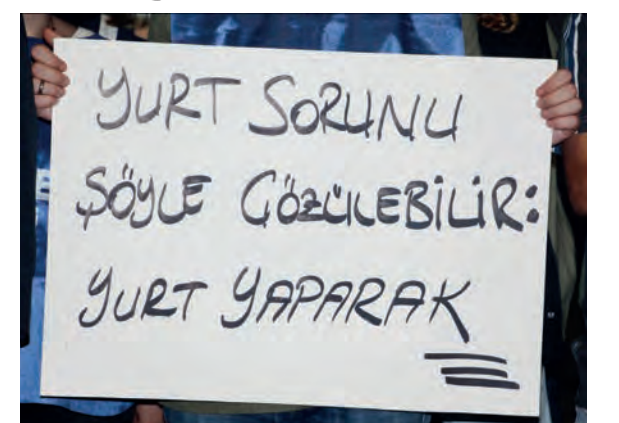 YURT SORUNU
ŞÖYLE ÇÖZÜLEBİLİR:
YURT YAPARAK